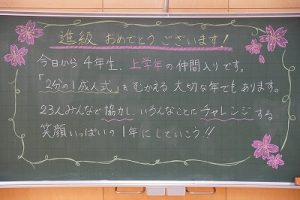 進級 おめでとう ございます!
今日から 4年生、上学年の仲間入りです。
「2分の1成人式」をむかえる 大切な年でもあります。
23人みんなで協力し、いろんなことにチャレンジする
笑顔いっぱいの1年にしていこう!!